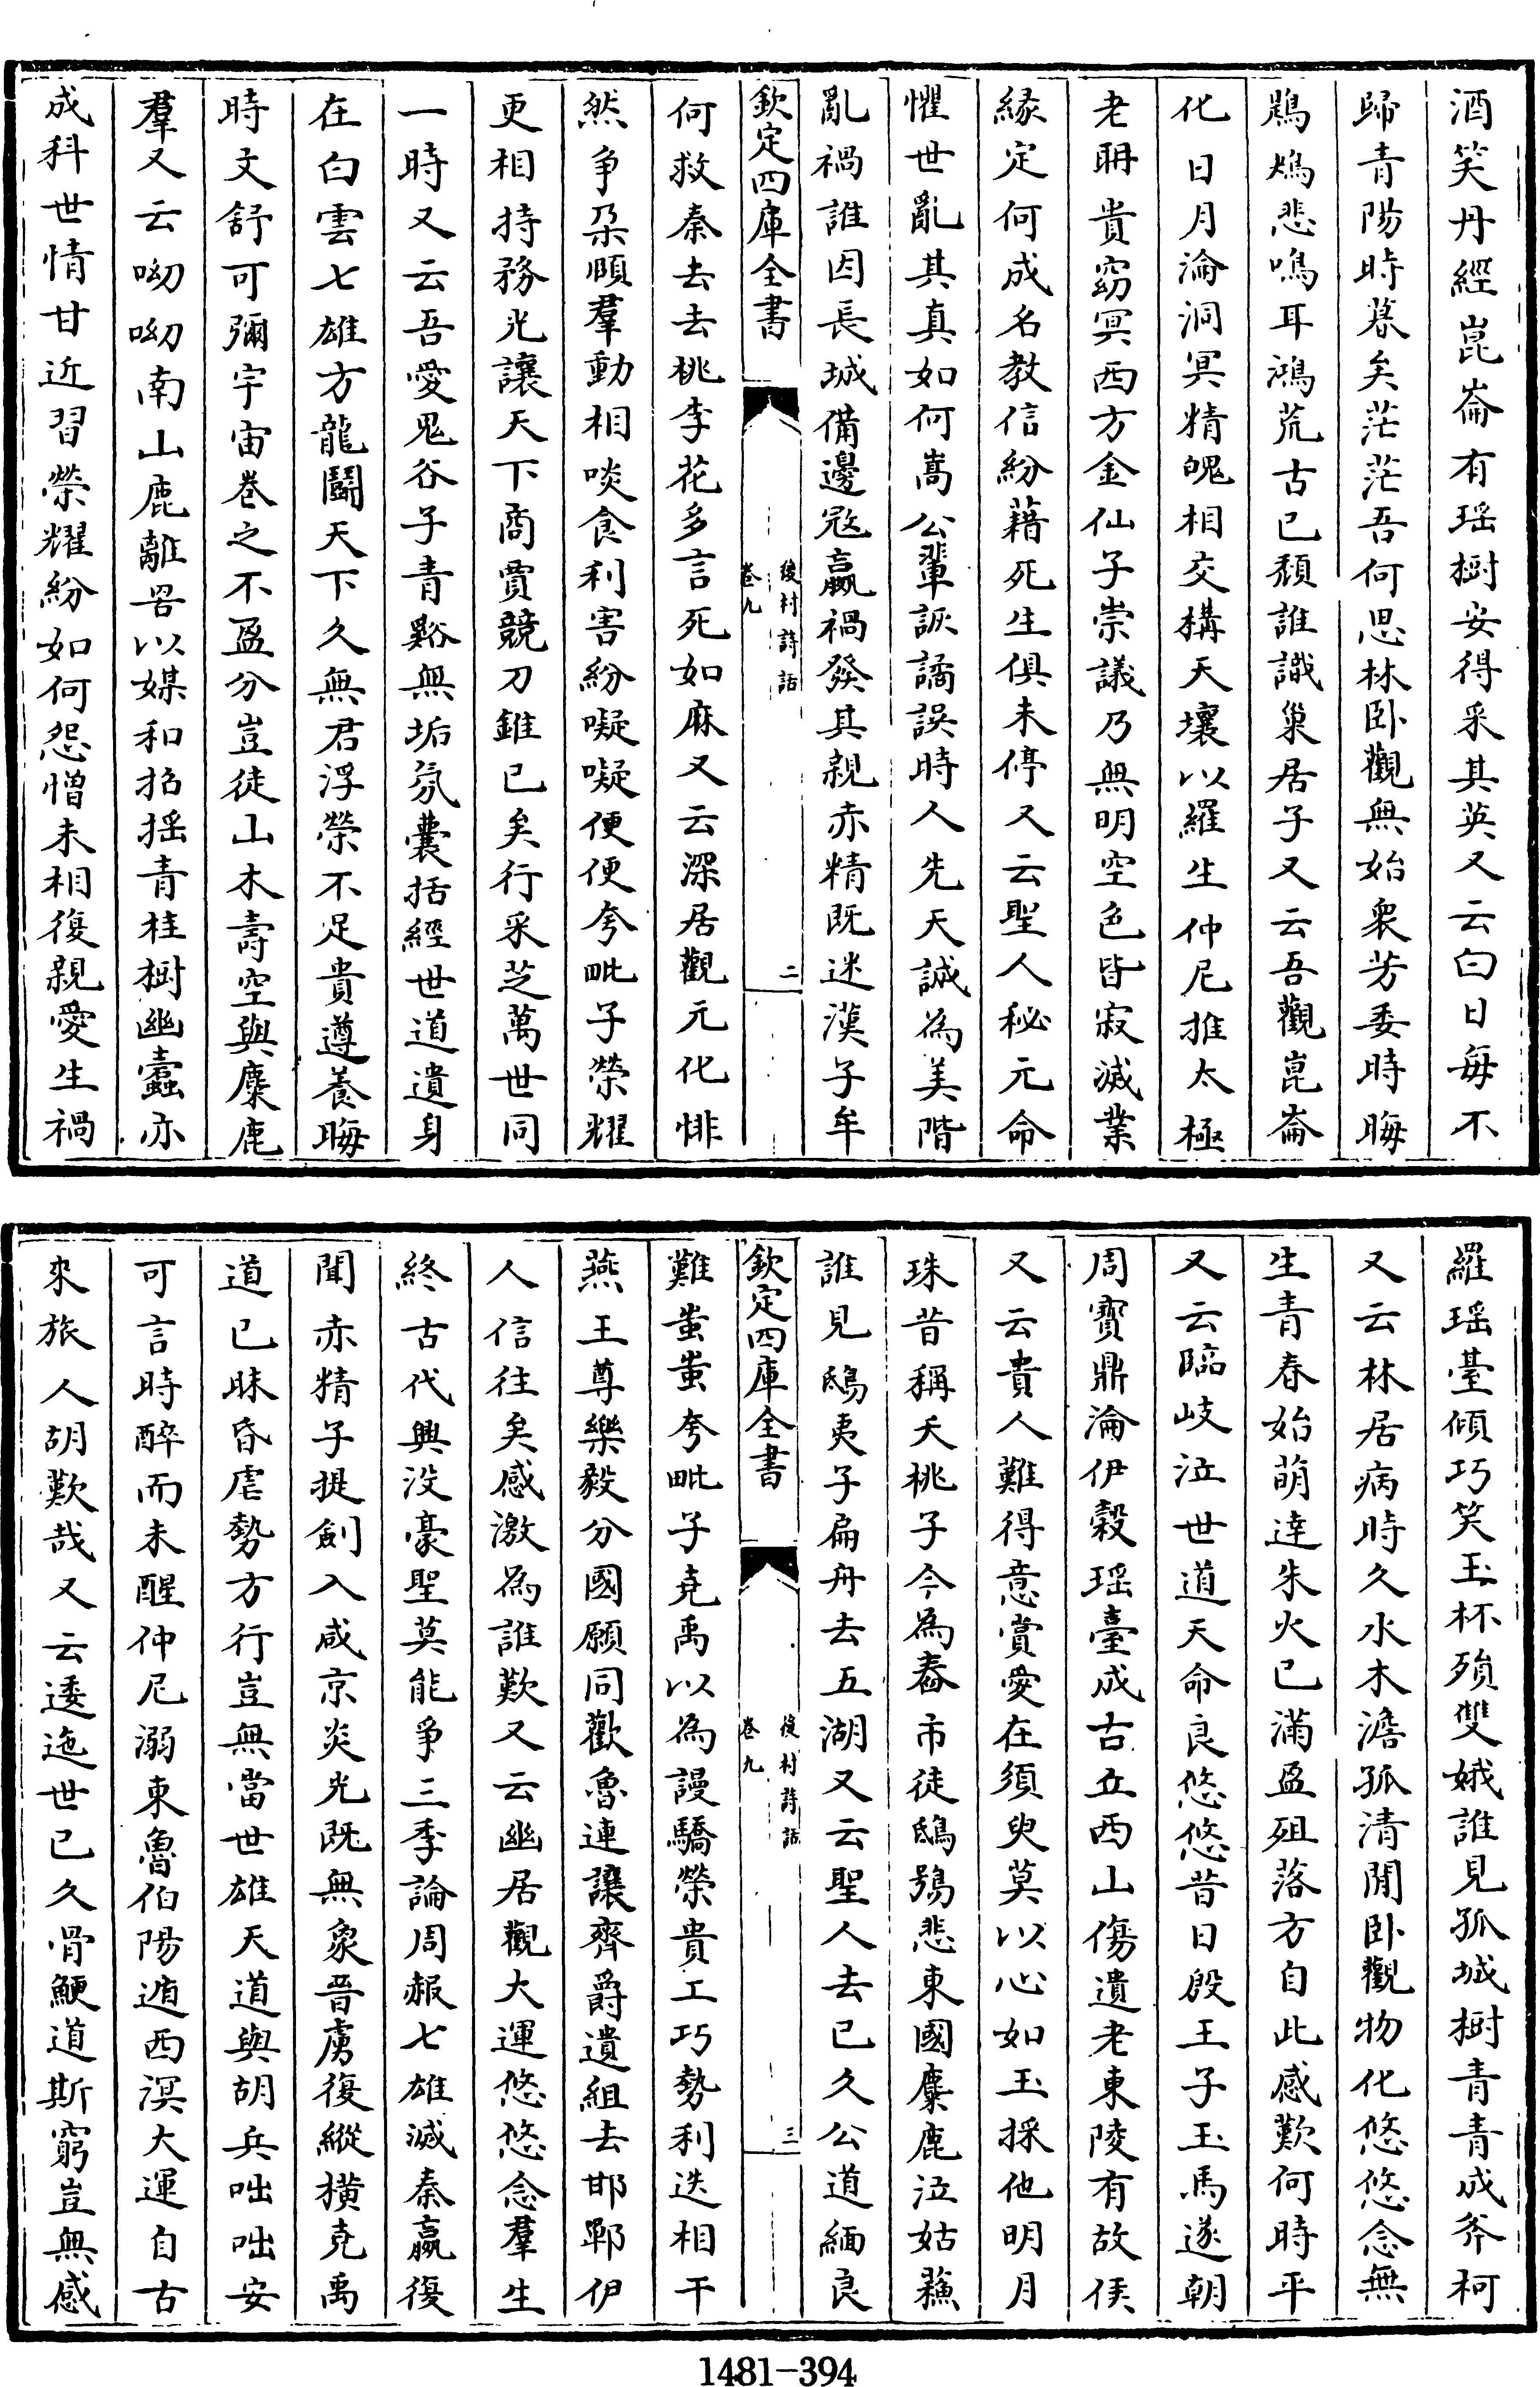 酒笑丹經崑崙有瑶樹安得采其英又云白日每不
歸青陽時暮矣茫茫吾何思林卧觀無始衆芳委時晦
鵜鴂悲鳴耳鴻荒古已頽誰識巢居子又云吾觀崑崙
化日月淪洞冥精魄相交構天壤以羅生仲尼推太極
老聃貴窈冥西方金仙子崇議乃無明空色皆寂滅業
緣定何成名教信紛藉死生俱未停又云聖人秘元命
懼世亂其真如何嵩公輩詼譎誤時人先天誠為美階
亂禍誰因長城備邊寇嬴禍發其親赤精既迷漢子牟
欽定四庫全書
後村詩話
卷九
二
何救秦去去桃李花多言死如麻又云深居觀元化悱
然争朶頤羣動相啖食利害紛㘈㘈便便夸毗子榮耀
更相持務光讓天下商賈競刀錐已矣行采芝萬世同
一時又云吾愛鬼谷子青谿無垢氛囊括經世道遺身
在白雲七雄方龍鬭天下久無君浮榮不足貴遵養晦
時文舒可彌宇宙卷之不盈分豈徒山木壽空與麋鹿
羣又云呦呦南山鹿離罟以媒和招摇青桂樹幽蠧亦
成科世情甘近習榮耀紛如何怨憎未相復親愛生禍
羅瑶臺傾巧笑玉杯殞雙娥誰見孤城樹青青成斧柯
又云林居病時久水木澹孤清閒卧觀物化悠悠念無
生青春始萌達朱火已滿盈殂落方自此感歎何時平
又云臨岐泣世道天命良悠悠昔日殷王子玉馬遂朝
周寳鼎淪伊穀瑶臺成古丘西山傷遺老東陵有故侯
又云貴人難得意賞愛在須臾莫以心如玉探他明月
珠昔稱夭桃子今為舂市徒鴟鴞悲東國麋鹿泣姑蘓
誰見鴟夷子扁舟去五湖又云聖人去已久公道緬良
欽定四庫全書
後村詩話
卷九
三
難蚩蚩夸毗子堯禹以為謾驕榮貴工巧勢利迭相干
燕王尊樂毅分國願同歡魯連讓齊爵遺組去邯鄲伊
人信往矣感激為誰歎又云幽居觀大運悠悠念羣生
終古代興没豪聖莫能爭三季論周赧七雄滅秦嬴復
聞赤精子提劍入咸京炎光既無象晉虜復縱横堯禹
道已昧昏虐勢方行豈無當世雄天道與胡兵咄咄安
可言時醉而未醒仲尼溺東魯伯陽遁西溟大運自古
來旅人胡歎哉又云逶迤世已久骨鯁道斯窮豈無感
1481-394